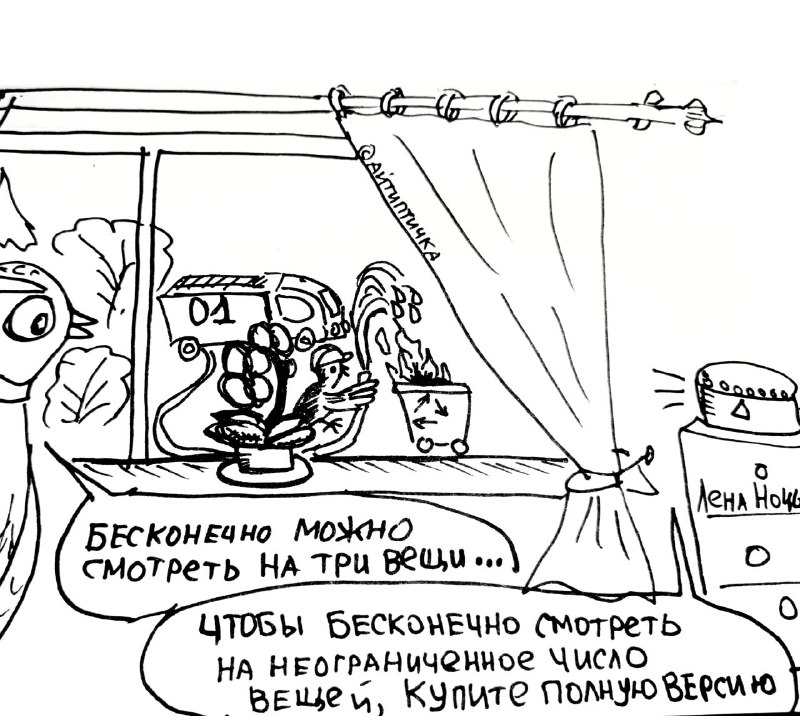 ©АЙТИПТИЧКА
01
БЕСКОНЕЧНО МОЖНО
СМОТРЕТЬ НА ТРИ ВЕЩИ...
ЧТОБЫ БЕСКОНЕЧНО СМОТРЕТЬ
НА НЕОГРАНИЧЕННОЕ ЧИСЛО
ВЕЩЕЙ, КУПИТЕ ПОЛНУЮ ВЕРСИЮ